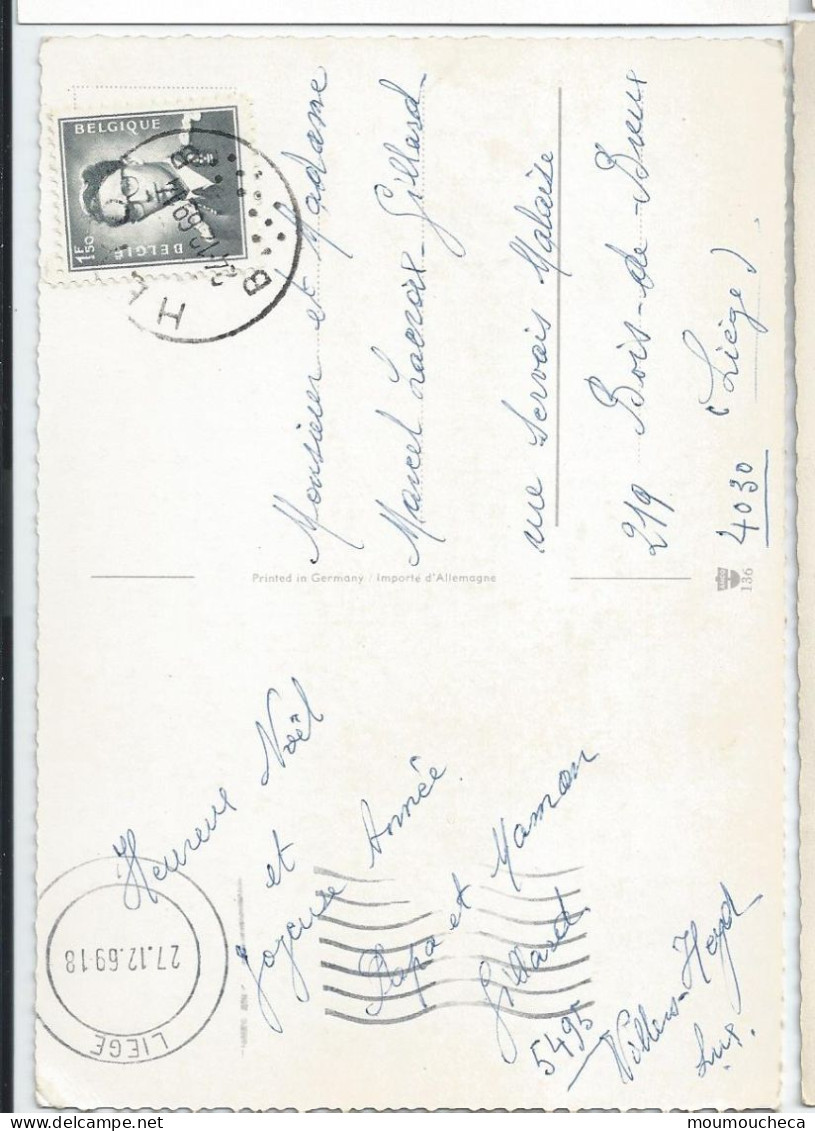 Heureux Noël
et
Joyeuse Année
Papa et Maman
Gillard
5495
Villers-Heyd
Lux.
Printed in Germany / Importé d'Allemagne
136
BELGIQUE
BELGIË
1F50
B
H
B
27.12.69-18
LIEGE
Monsieur et Madame
Marcel Lacroix-Gillard
rue Servais Malaise
219 Bois-de-Breux
(Liège)
4030
moumoucheca